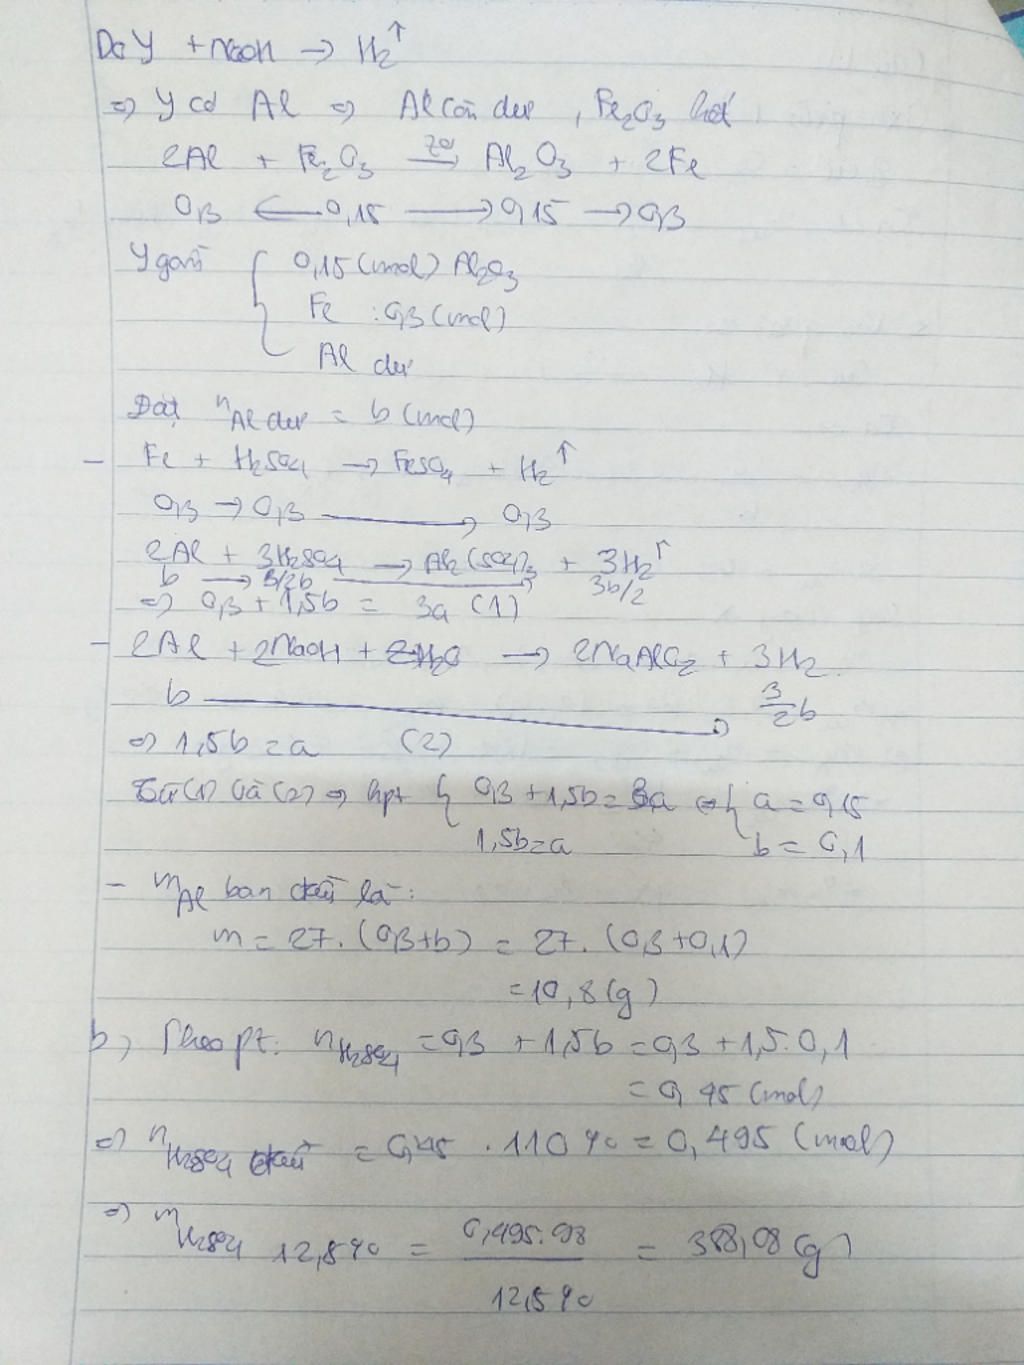 Do Y + NaOH → H₂↑
⇒ Y có Al ⇒ Al còn dư, Fe₂O₃ hết
2Al + Fe₂O₃ →(t⁰) Al₂O₃ + 2Fe
0,3 ← 0,15 → 0,15 → 0,3
Y gồm { 0,15 (mol) Al₂O₃
Fe : 0,3 (mol)
Al dư
Đặt n Al dư = b (mol)
- Fe + H₂SO₄ → FeSO₄ + H₂↑
0,3 → 0,3 → 0,3
2Al + 3H₂SO₄ → Al₂(SO₄)₃ + 3H₂↑
b → 3/2b → 3b/2
⇒ 0,3 + 1,5b = 3a (1)
- 2Al + 2NaOH + 2H₂O → 2NaAlO₂ + 3H₂
b → 3/2 b
⇒ 1,5b = a (2)
Từ (1) và (2) ⇒ hpt { 0,3 + 1,5b = 3a ⇔ { a = 0,15
1,5b = a b = 0,1
- m Al ban đầu là:
m = 27. (0,3+b) = 27. (0,3+0,1)
= 10,8 (g)
b, Theo pt: n H₂SO₄ = 0,3 + 1,5b = 0,3 + 1,5. 0,1
= 0,45 (mol)
⇒ n H₂SO₄ đầu = 0,45 . 110% = 0,495 (mol)
⇒ m H₂SO₄ 12,5% = 0,495.98 / 12,5% = 388,08 (g)